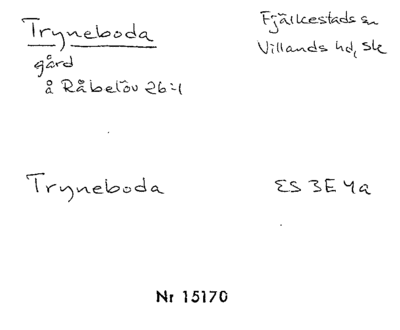 Tryneboda
Fjälkestads sn
Villands hd, Sk
gård
å Råbelöv 26:1
Tryneboda
ES 3E 4a
Nr 15170